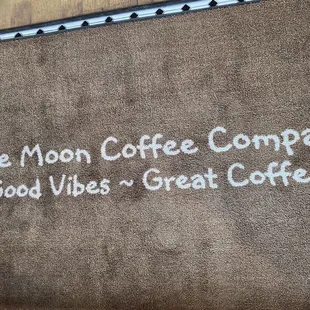 e Moon Coffee Compa
Good Vibes ~ Great Coffee